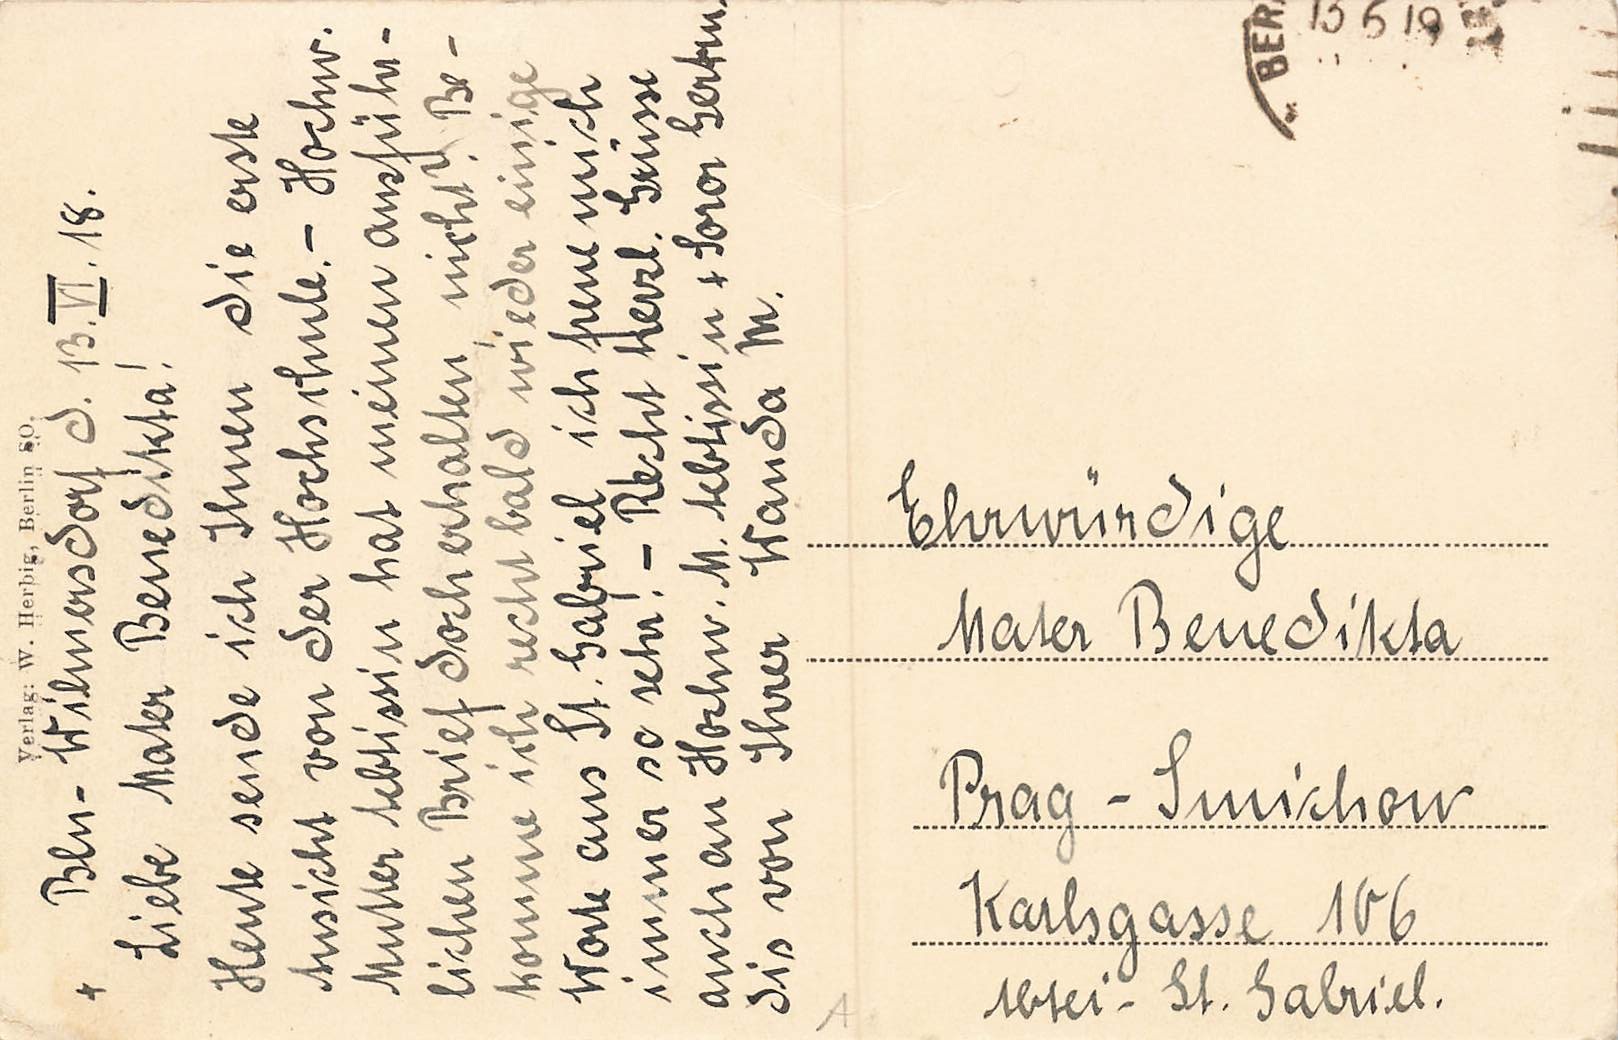 Verlag: W. Herbig, Berlin SO.
+ Bln-Wilmersdorf d. 13.VI.18.
Liebe Mater Benedikta!
Heute sende ich Ihnen die erste
Ansicht von der Hochschule.- Hochw.
Mutter Aebtissin hat meinen ausführ-
lichen Brief doch erhalten, nicht? Be-
komme ich recht bald wieder einige
Worte aus St. Gabriel ich freue mich
immer so sehr! - Recht herzl. Grüsse
auch an Hochw. M. Aebtissin + Soror Gertru-
dis von Ihrer Wanda M.
BER
13 6 18
Ehrwürdige
Mater Benedikta
Prag - Smichow
Karlsgasse 106
Abtei - St. Gabriel.
A